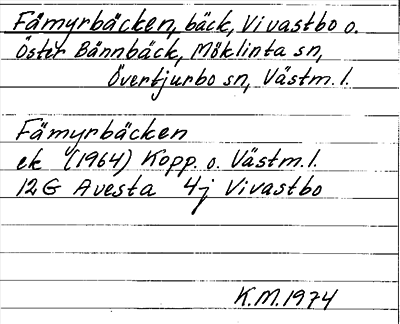 Fämyrbäcken, bäck, Vivastbo o.
Öster Bännbäck, Möklinta sn,
Övertjurbo sn, Västm. l.
Fämyrbäcken
ek (1964) Kopp. o. Västm. l.
12G Avesta 4j Vivastbo
K.M. 1974